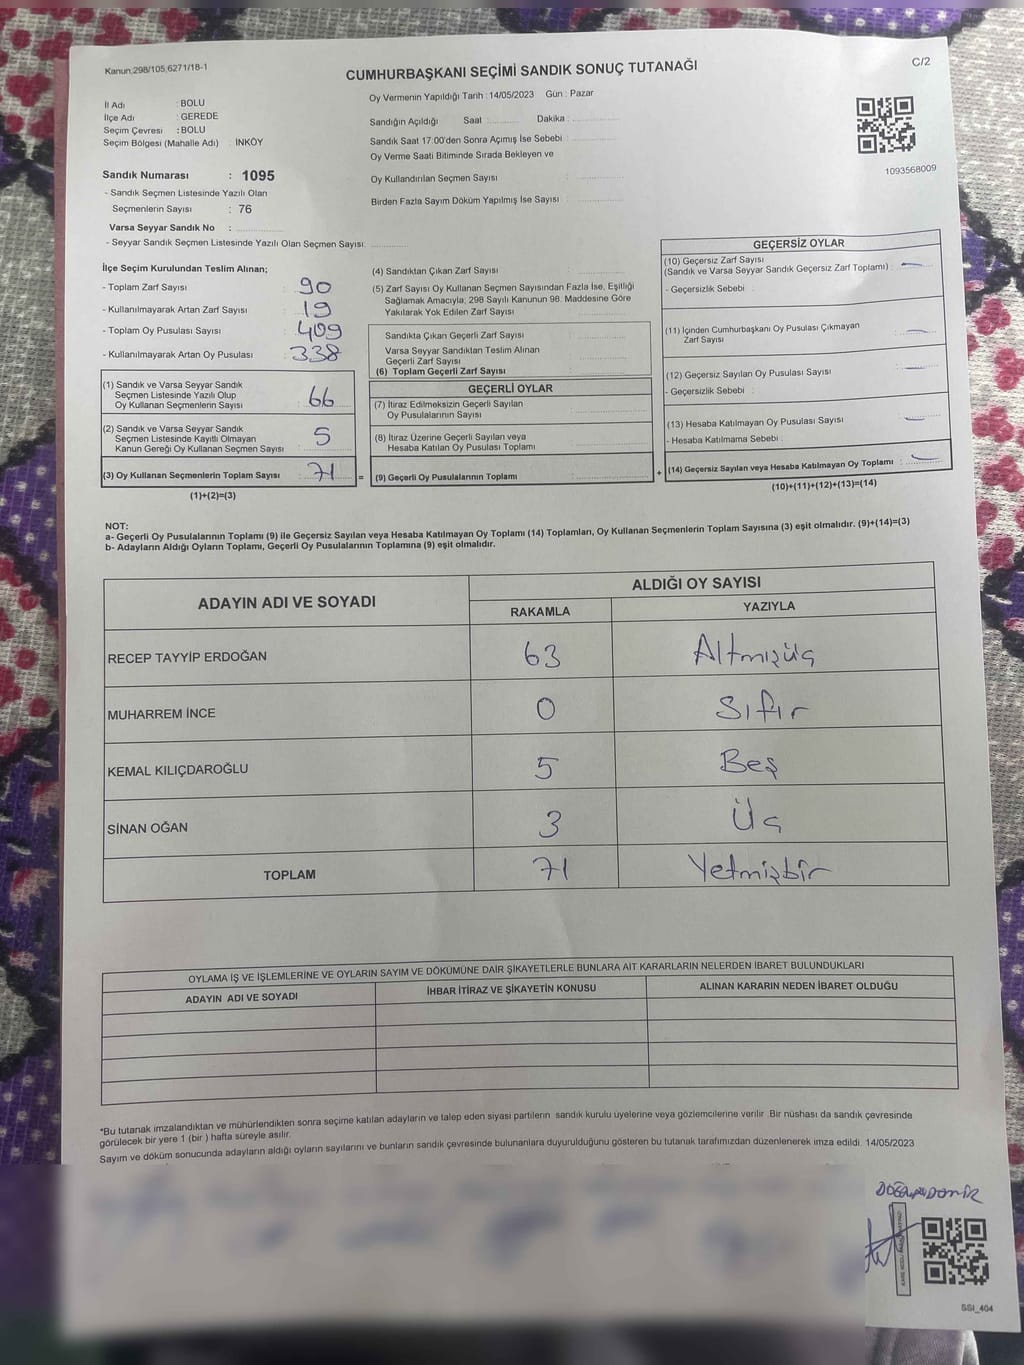 Kanun,298/105,6271/18-1
CUMHURBAŞKANI SEÇİMİ SANDIK SONUÇ TUTANAĞI
C/2
İl Adı : BOLU
İlçe Adı : GEREDE
Seçim Çevresi : BOLU
Seçim Bölgesi (Mahalle Adı) : İNKÖY
Sandık Numarası : 1095
- Sandık Seçmen Listesinde Yazılı Olan
Seçmenlerin Sayısı : 76
Varsa Seyyar Sandık No :
- Seyyar Sandık Seçmen Listesinde Yazılı Olan Seçmen Sayısı:
Oy Vermenin Yapıldığı Tarih : 14/05/2023 Gün : Pazar
Sandığın Açıldığı Saat : Dakika :
Sandık Saat 17:00'den Sonra Açımış İse Sebebi :
Oy Verme Saati Bitiminde Sırada Bekleyen ve
Oy Kullandırılan Seçmen Sayısı :
Birden Fazla Sayım Döküm Yapılmış İse Sayısı :
1093568009
İlçe Seçim Kurulundan Teslim Alınan;
- Toplam Zarf Sayısı : 90
- Kullanılmayarak Artan Zarf Sayısı : 19
- Toplam Oy Pusulası Sayısı : 409
- Kullanılmayarak Artan Oy Pusulası : 338
(1) Sandık ve Varsa Seyyar Sandık
Seçmen Listesinde Yazılı Olup
Oy Kullanan Seçmenlerin Sayısı : 66
(2) Sandık ve Varsa Seyyar Sandık
Seçmen Listesinde Kayıtlı Olmayan
Kanun Gereği Oy Kullanan Seçmen Sayısı : 5
(3) Oy Kullanan Seçmenlerin Toplam Sayısı : 71 =
(1)+(2)=(3)
(4) Sandıktan Çıkan Zarf Sayısı :
(5) Zarf Sayısı Oy Kullanan Seçmen Sayısından Fazla İse, Eşitliği
Sağlamak Amacıyla; 298 Sayılı Kanunun 98. Maddesine Göre
Yakılarak Yok Edilen Zarf Sayısı :
Sandıkta Çıkan Geçerli Zarf Sayısı :
Varsa Seyyar Sandıktan Teslim Alınan
Geçerli Zarf Sayısı :
(6) Toplam Geçerli Zarf Sayısı :
GEÇERLİ OYLAR
(7) İtiraz Edilmeksizin Geçerli Sayılan
Oy Pusulalarının Sayısı :
(8) İtiraz Üzerine Geçerli Sayılan veya
Hesaba Katılan Oy Pusulası Toplamı :
(9) Geçerli Oy Pusulalarının Toplamı : +
GEÇERSİZ OYLAR
(10) Geçersiz Zarf Sayısı
(Sandık ve Varsa Seyyar Sandık Geçersiz Zarf Toplamı) : —
- Geçersizlik Sebebi :
(11) İçinden Cumhurbaşkanı Oy Pusulası Çıkmayan
Zarf Sayısı : —
(12) Geçersiz Sayılan Oy Pusulası Sayısı : —
- Geçersizlik Sebebi :
(13) Hesaba Katılmayan Oy Pusulası Sayısı : —
- Hesaba Katılmama Sebebi :
(14) Geçersiz Sayılan veya Hesaba Katılmayan Oy Toplamı : —
(10)+(11)+(12)+(13)=(14)
NOT:
a- Geçerli Oy Pusulalarının Toplamı (9) ile Geçersiz Sayılan veya Hesaba Katılmayan Oy Toplamı (14) Toplamları, Oy Kullanan Seçmenlerin Toplam Sayısına (3) eşit olmalıdır. (9)+(14)=(3)
b- Adayların Aldığı Oyların Toplamı, Geçerli Oy Pusulalarının Toplamına (9) eşit olmalıdır.
ADAYIN ADI VE SOYADI
ALDIĞI OY SAYISI
RAKAMLA YAZIYLA
RECEP TAYYİP ERDOĞAN 63 Altmışüç
MUHARREM İNCE 0 Sıfır
KEMAL KILIÇDAROĞLU 5 Beş
SİNAN OĞAN 3 Üç
TOPLAM 71 Yetmişbir
OYLAMA İŞ VE İŞLEMLERİNE VE OYLARIN SAYIM VE DÖKÜMÜNE DAİR ŞİKAYETLERLE BUNLARA AİT KARARLARIN NELERDEN İBARET BULUNDUKLARI
ADAYIN ADI VE SOYADI İHBAR İTİRAZ VE ŞİKAYETİN KONUSU ALINAN KARARIN NEDEN İBARET OLDUĞU
*Bu tutanak imzalandıktan ve mühürlendikten sonra seçime katılan adayların ve talep eden siyasi partilerin sandık kurulu üyelerine veya gözlemcilerine verilir .Bir nüshası da sandık çevresinde
görülecek bir yere 1 (bir ) hafta süreyle asılır.
Sayım ve döküm sonucunda adayların aldığı oyların sayılarını ve bunların sandık çevresinde bulunanlara duyurulduğunu gösteren bu tutanak tarafımızdan düzenlenerek imza edildi. 14/05/2023
SSI_404